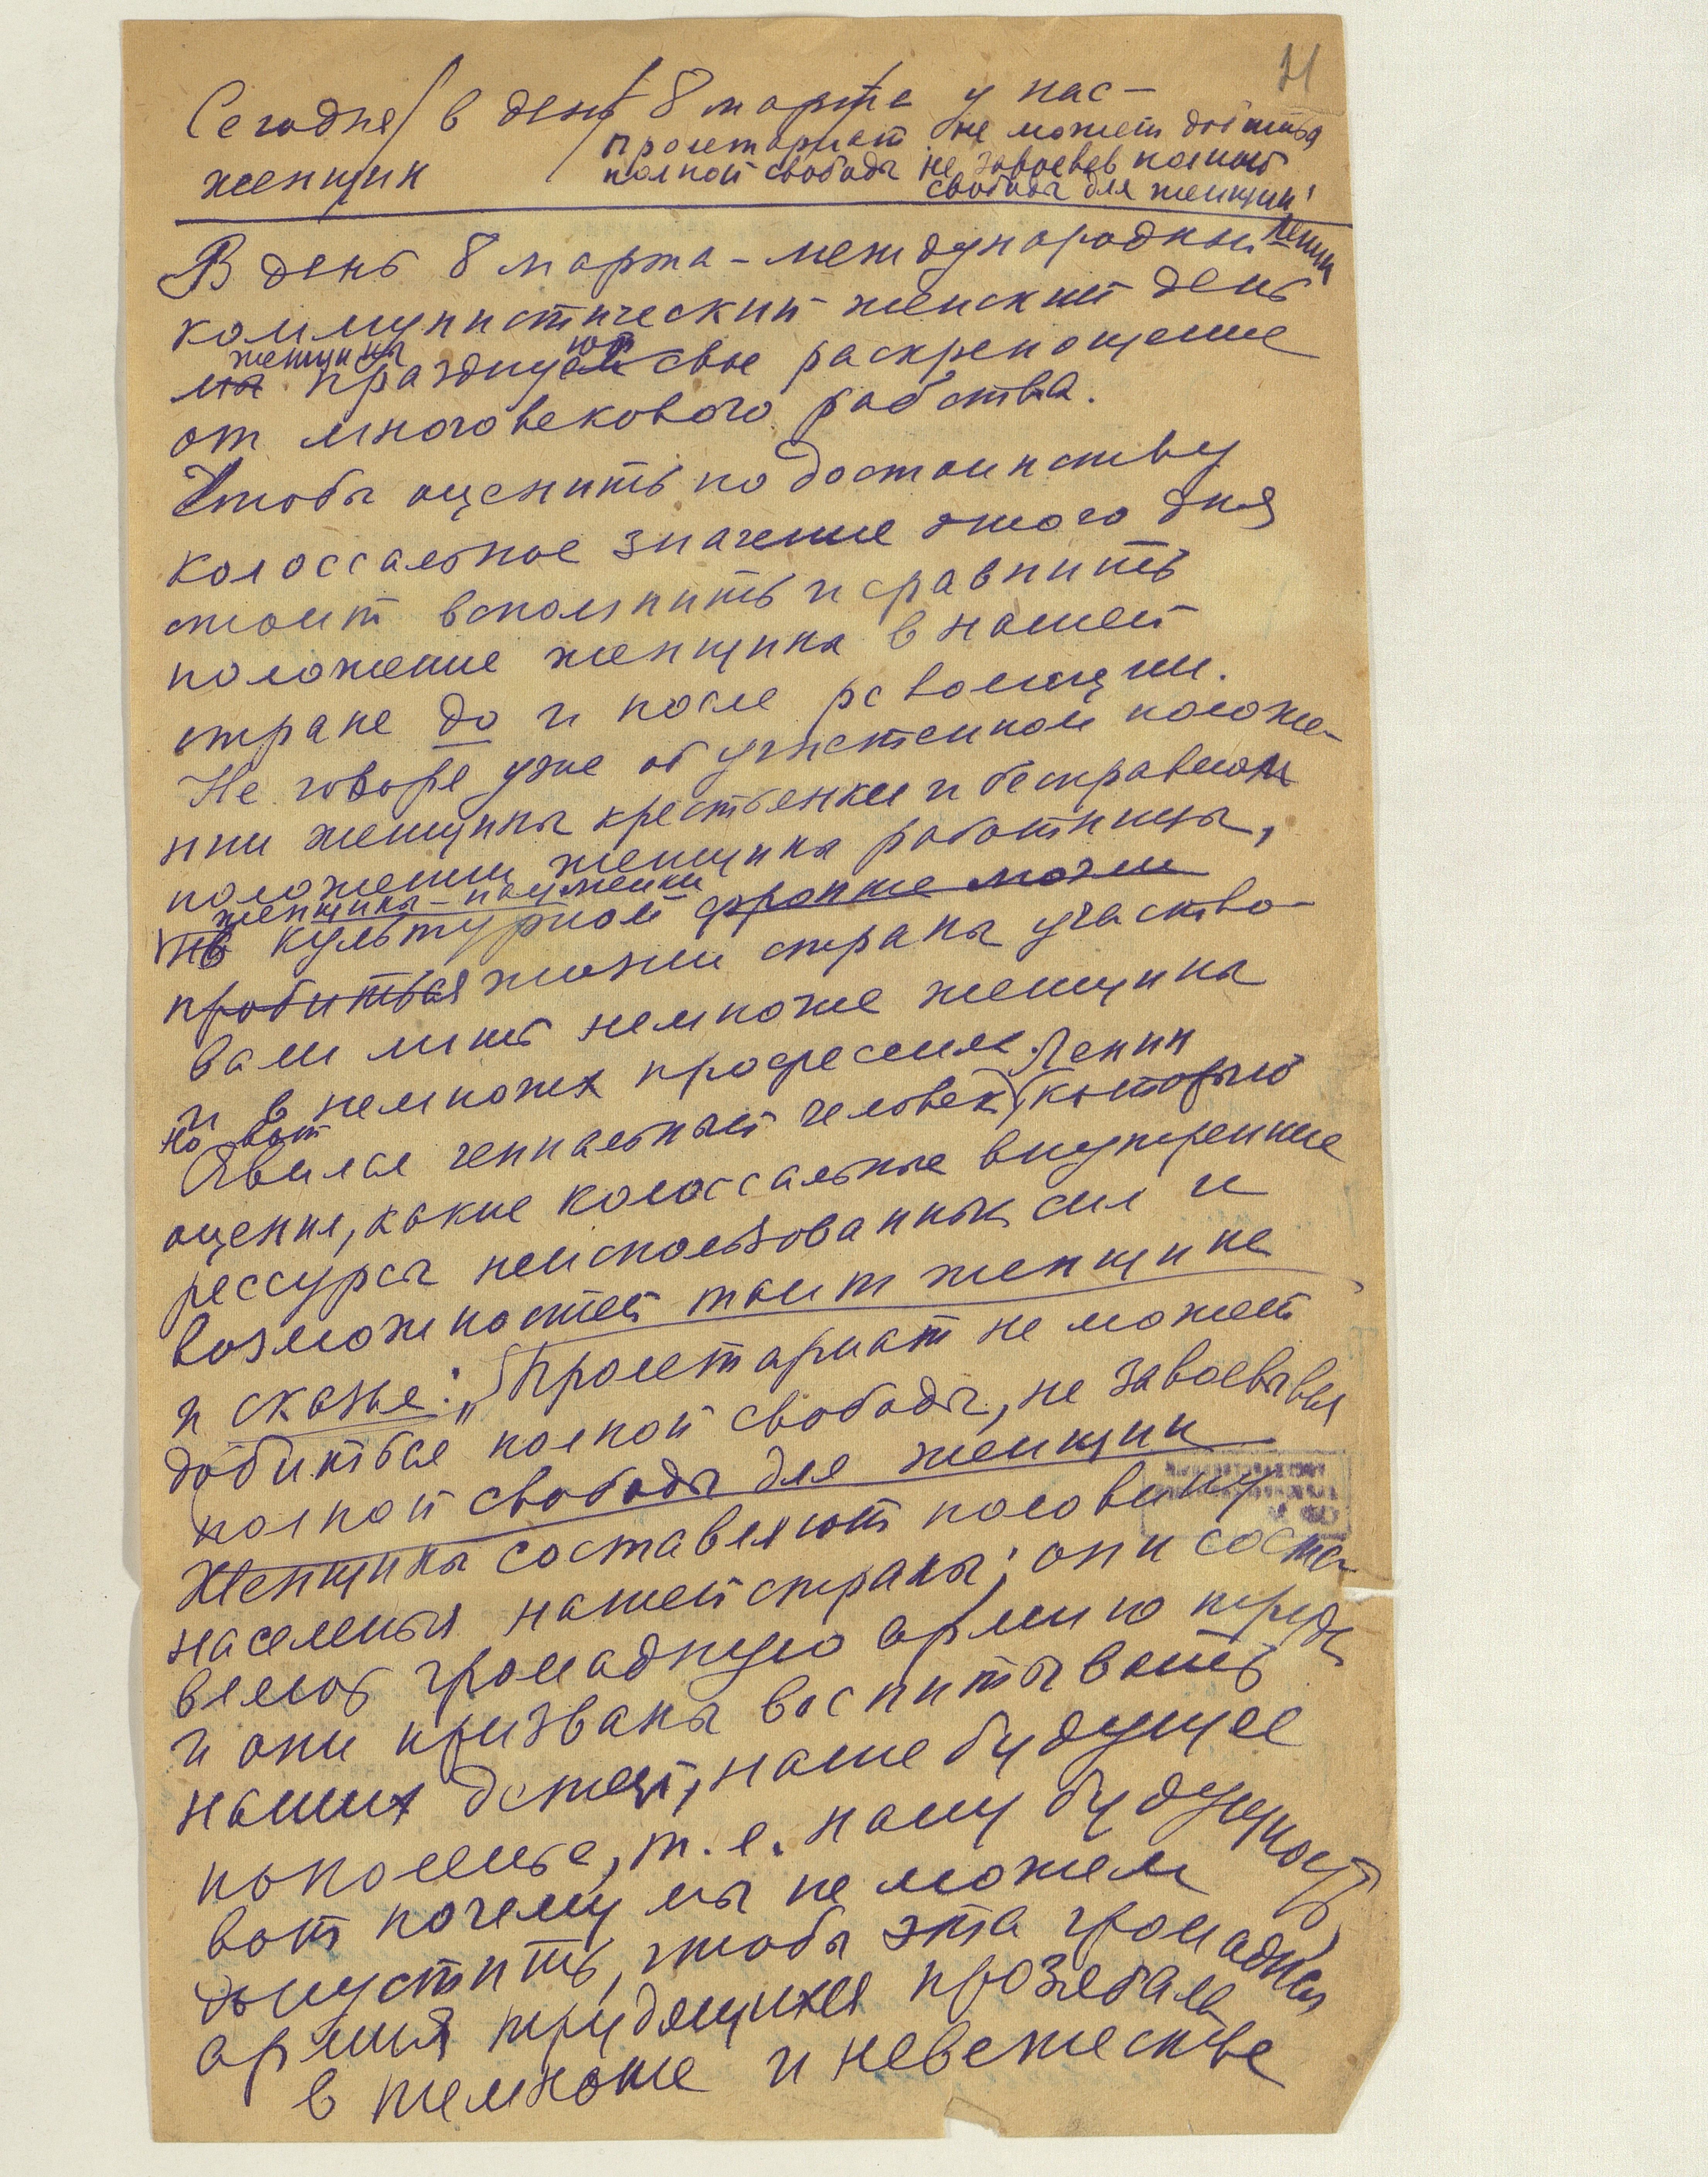 21
Сегодня в день 8 марта у нас –
женщин
Пролетариат не может добиться
полной свободы не завоевав полной
свободы для женщин!
Ленин
В день 8 марта – международный
коммунистический женский день
женщины
мы празднуют свое раскрепощение
от многовекового рабства.
Чтобы оценить по достоинству
колоссальное значение этого дня
стоит вспомнить и сравнить
положение женщины в нашей
стране до и после революции.
Не говоря уже об угнетенном положе-
нии женщины крестьянки и бесправном
положении женщины работницы,
женщины-
на культурном фронте могли
пробиться жизни страны участво-
вали лишь немногие женщины
и в немногих профессиях. Ленин
Но вот
Явился гениальный человек, который
оценил, какие колоссальные внутренние
рессурсы неиспользованных сил и
возможностей таит женщине
и сказал: „Пролетариат не может
добиться полной свободы, не завоевывая
полной свободы для женщин
Женщины составляют половину
населенья нашей страны; они соста-
вляют громадную армию труда
и они призваны воспитывать
наших детей, наше будущее
поколенье, т.е. нашу будущность
вот почему мы не можем
допустить, чтобы эта громадная
армия трудящихся прозябала
в темноте и невежестве